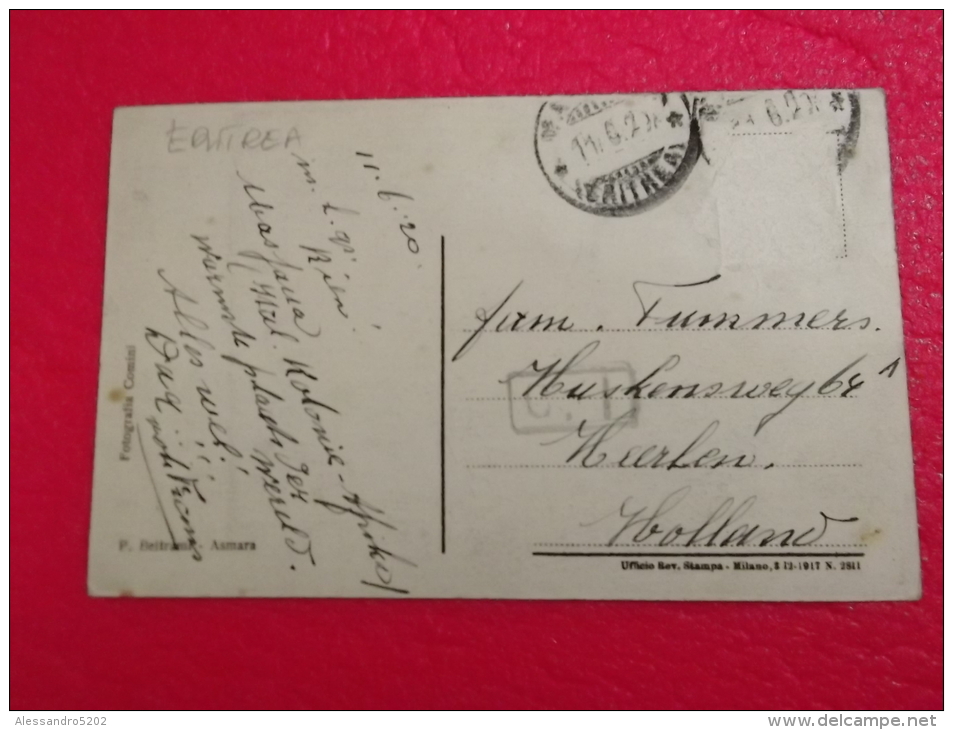 ERITREA
11.6.20
Rien!
Massaua
Ital. Kolonie - Afrika
warmste plaats der
wereld.
Alles wel!
Fotografia Comini
Asmara
11.6.2
(ERITREA)
6.2
fam. Tummers.
Huskensweg 64
Heerlen.
Holland
Ufficio Rev. Stampa - Milano, 3 12-1917 N. 2811
Alessandro5202
www.delcampe.net